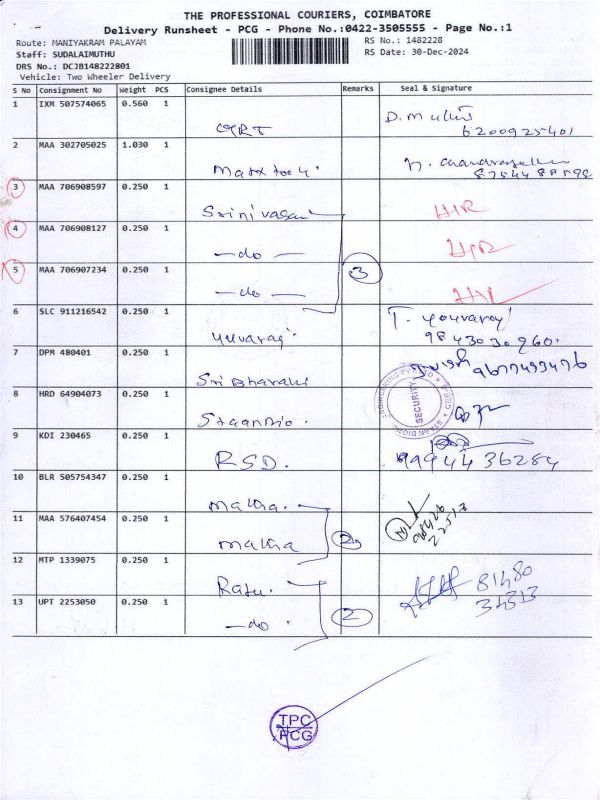 THE PROFESSIONAL COURIERS, COIMBATORE
Delivery Runsheet - PCG - Phone No.:0422-3505555 - Page No.:1
Route: MANIYAKRAM PALAYAM
RS No.: 1482228
Staff: SUDALAIMUTHU
RS Date: 30-Dec-2024
DRS No.: DCJB148222801
Vehicle: Two Wheeler Delivery
S No Consignment No Weight PCS Consignee Details Remarks Seal & Signature
1 IXM 507574065 0.560 1 D.
6200925401
2 MAA 302705025 1.030 1
3 MAA 706908597 0.250 1 Srinivasan
4 MAA 706908127 0.250 1 —do—
5 MAA 706907234 0.250 1 —do— 3
6 SLC 911216542 0.250 1 yuvaraj T. youvaraj
7 DPM 480401 0.250 1 Sri
8 HRD 64904073 0.250 1 SECURITY
9 KDI 230465 0.250 1 RSD. 9994436284
10 BLR 505754347 0.250 1
11 MAA 576407454 0.250 1 2
12 MTP 1339075 0.250 1 Raju. 81480
34313
13 UPT 2253050 0.250 1 —do 2
TPC
PCG